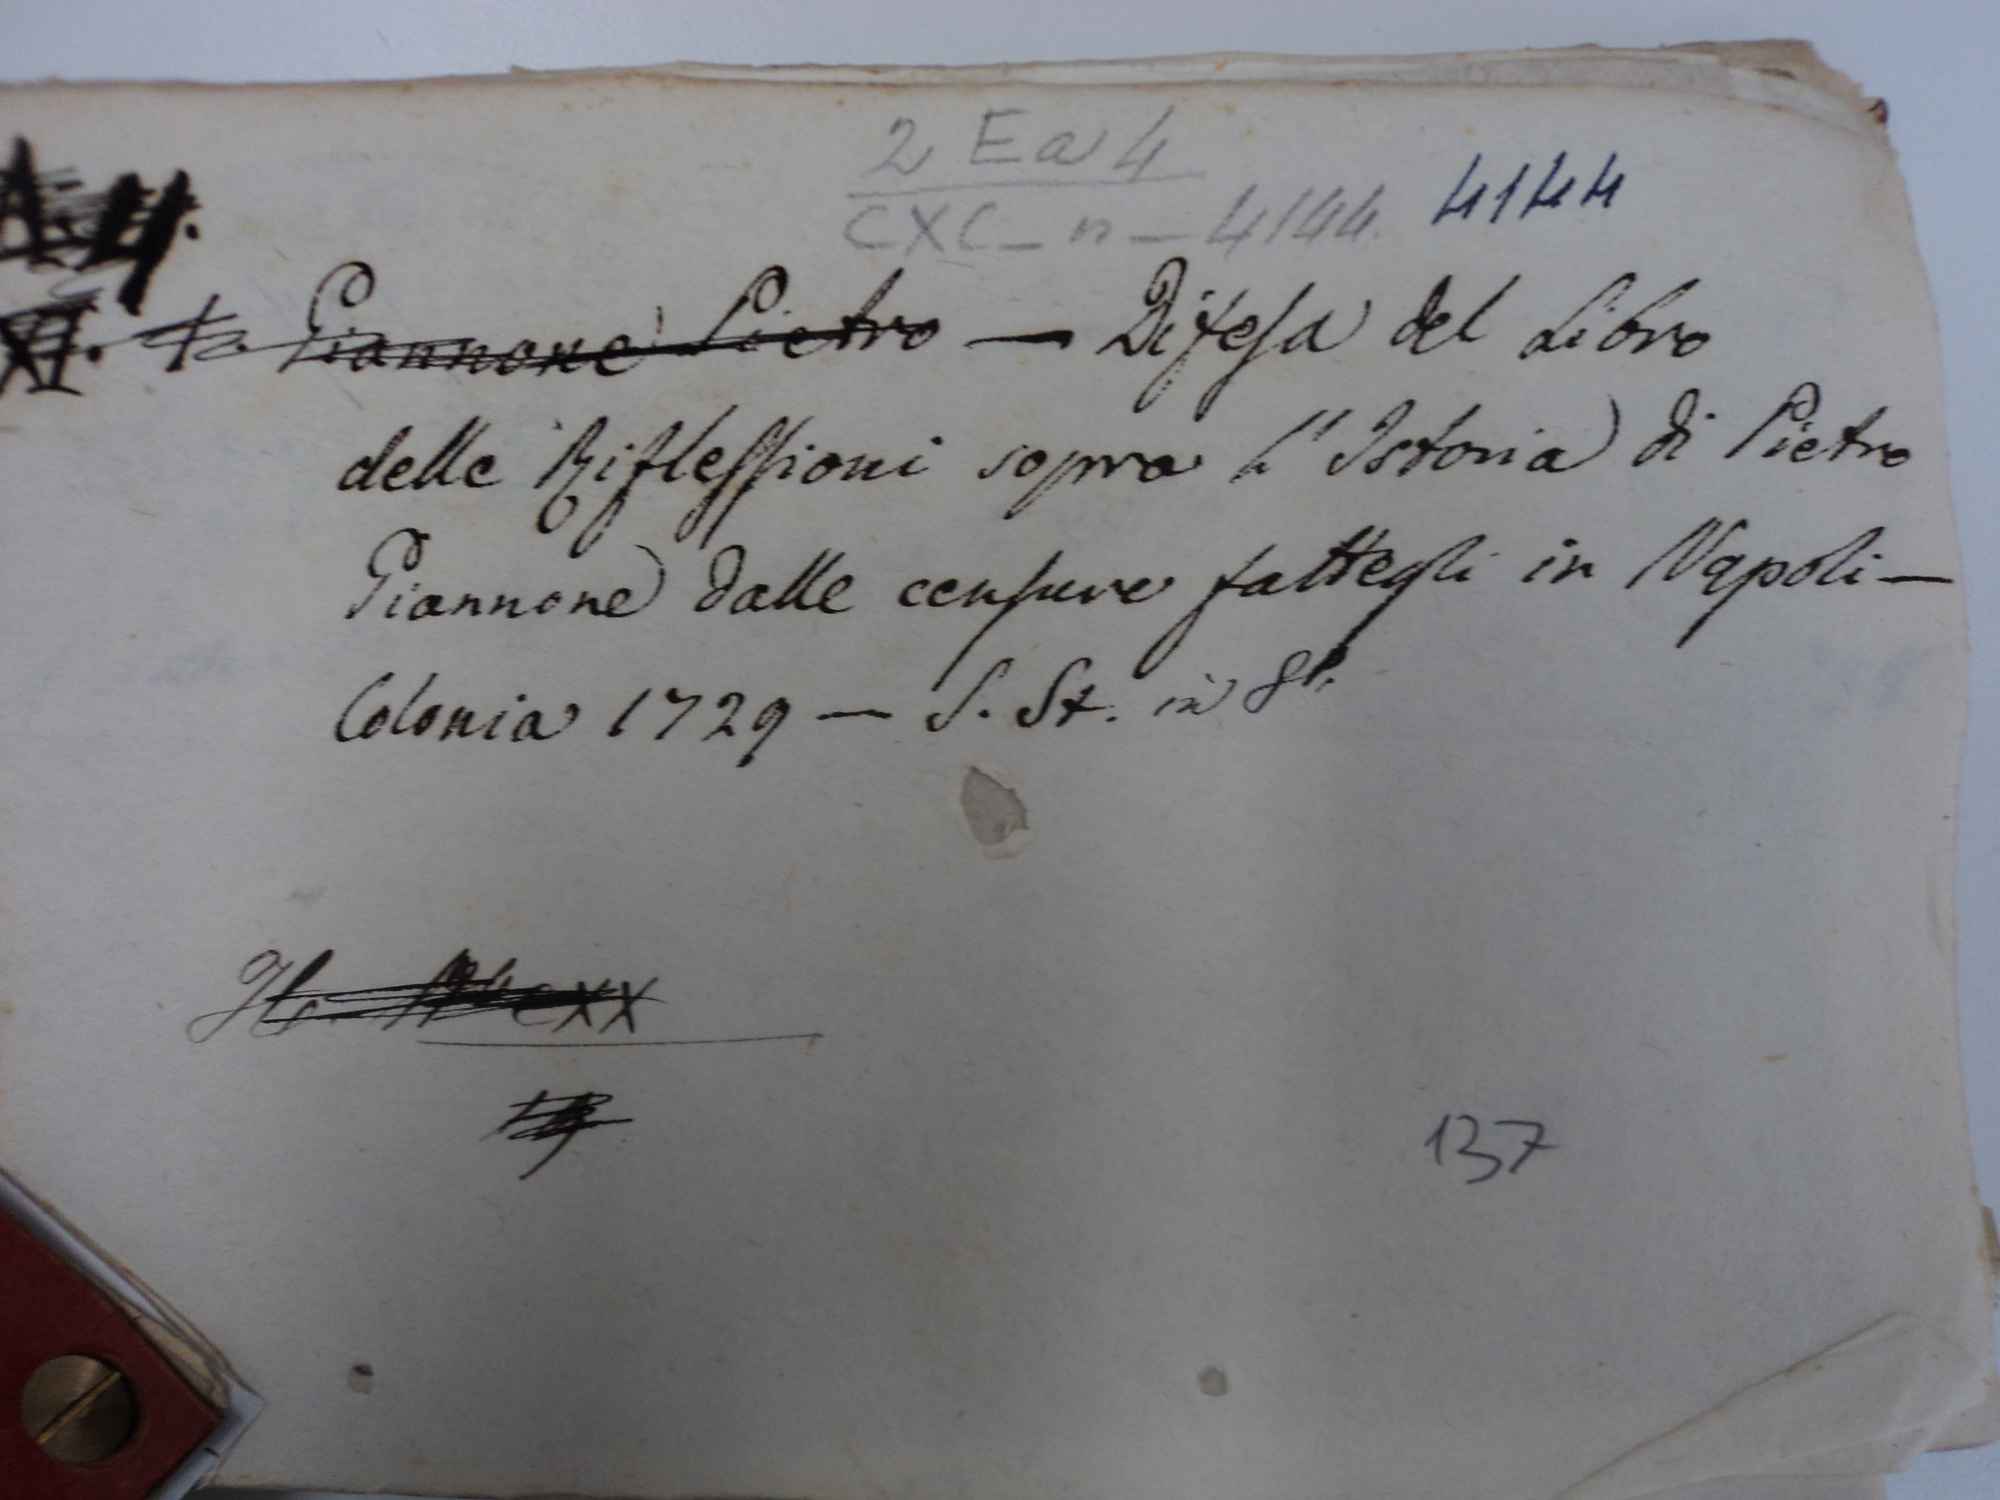 2 Ea 4
CXC - n - 4144. 4144
Giannone Pietro — Difesa del Libro
delle Riflessioni sopra l'Istoria di Pietro
Giannone dalle censure fattegli in Napoli —
Colonia 1729 — S. St. in 8º.
137